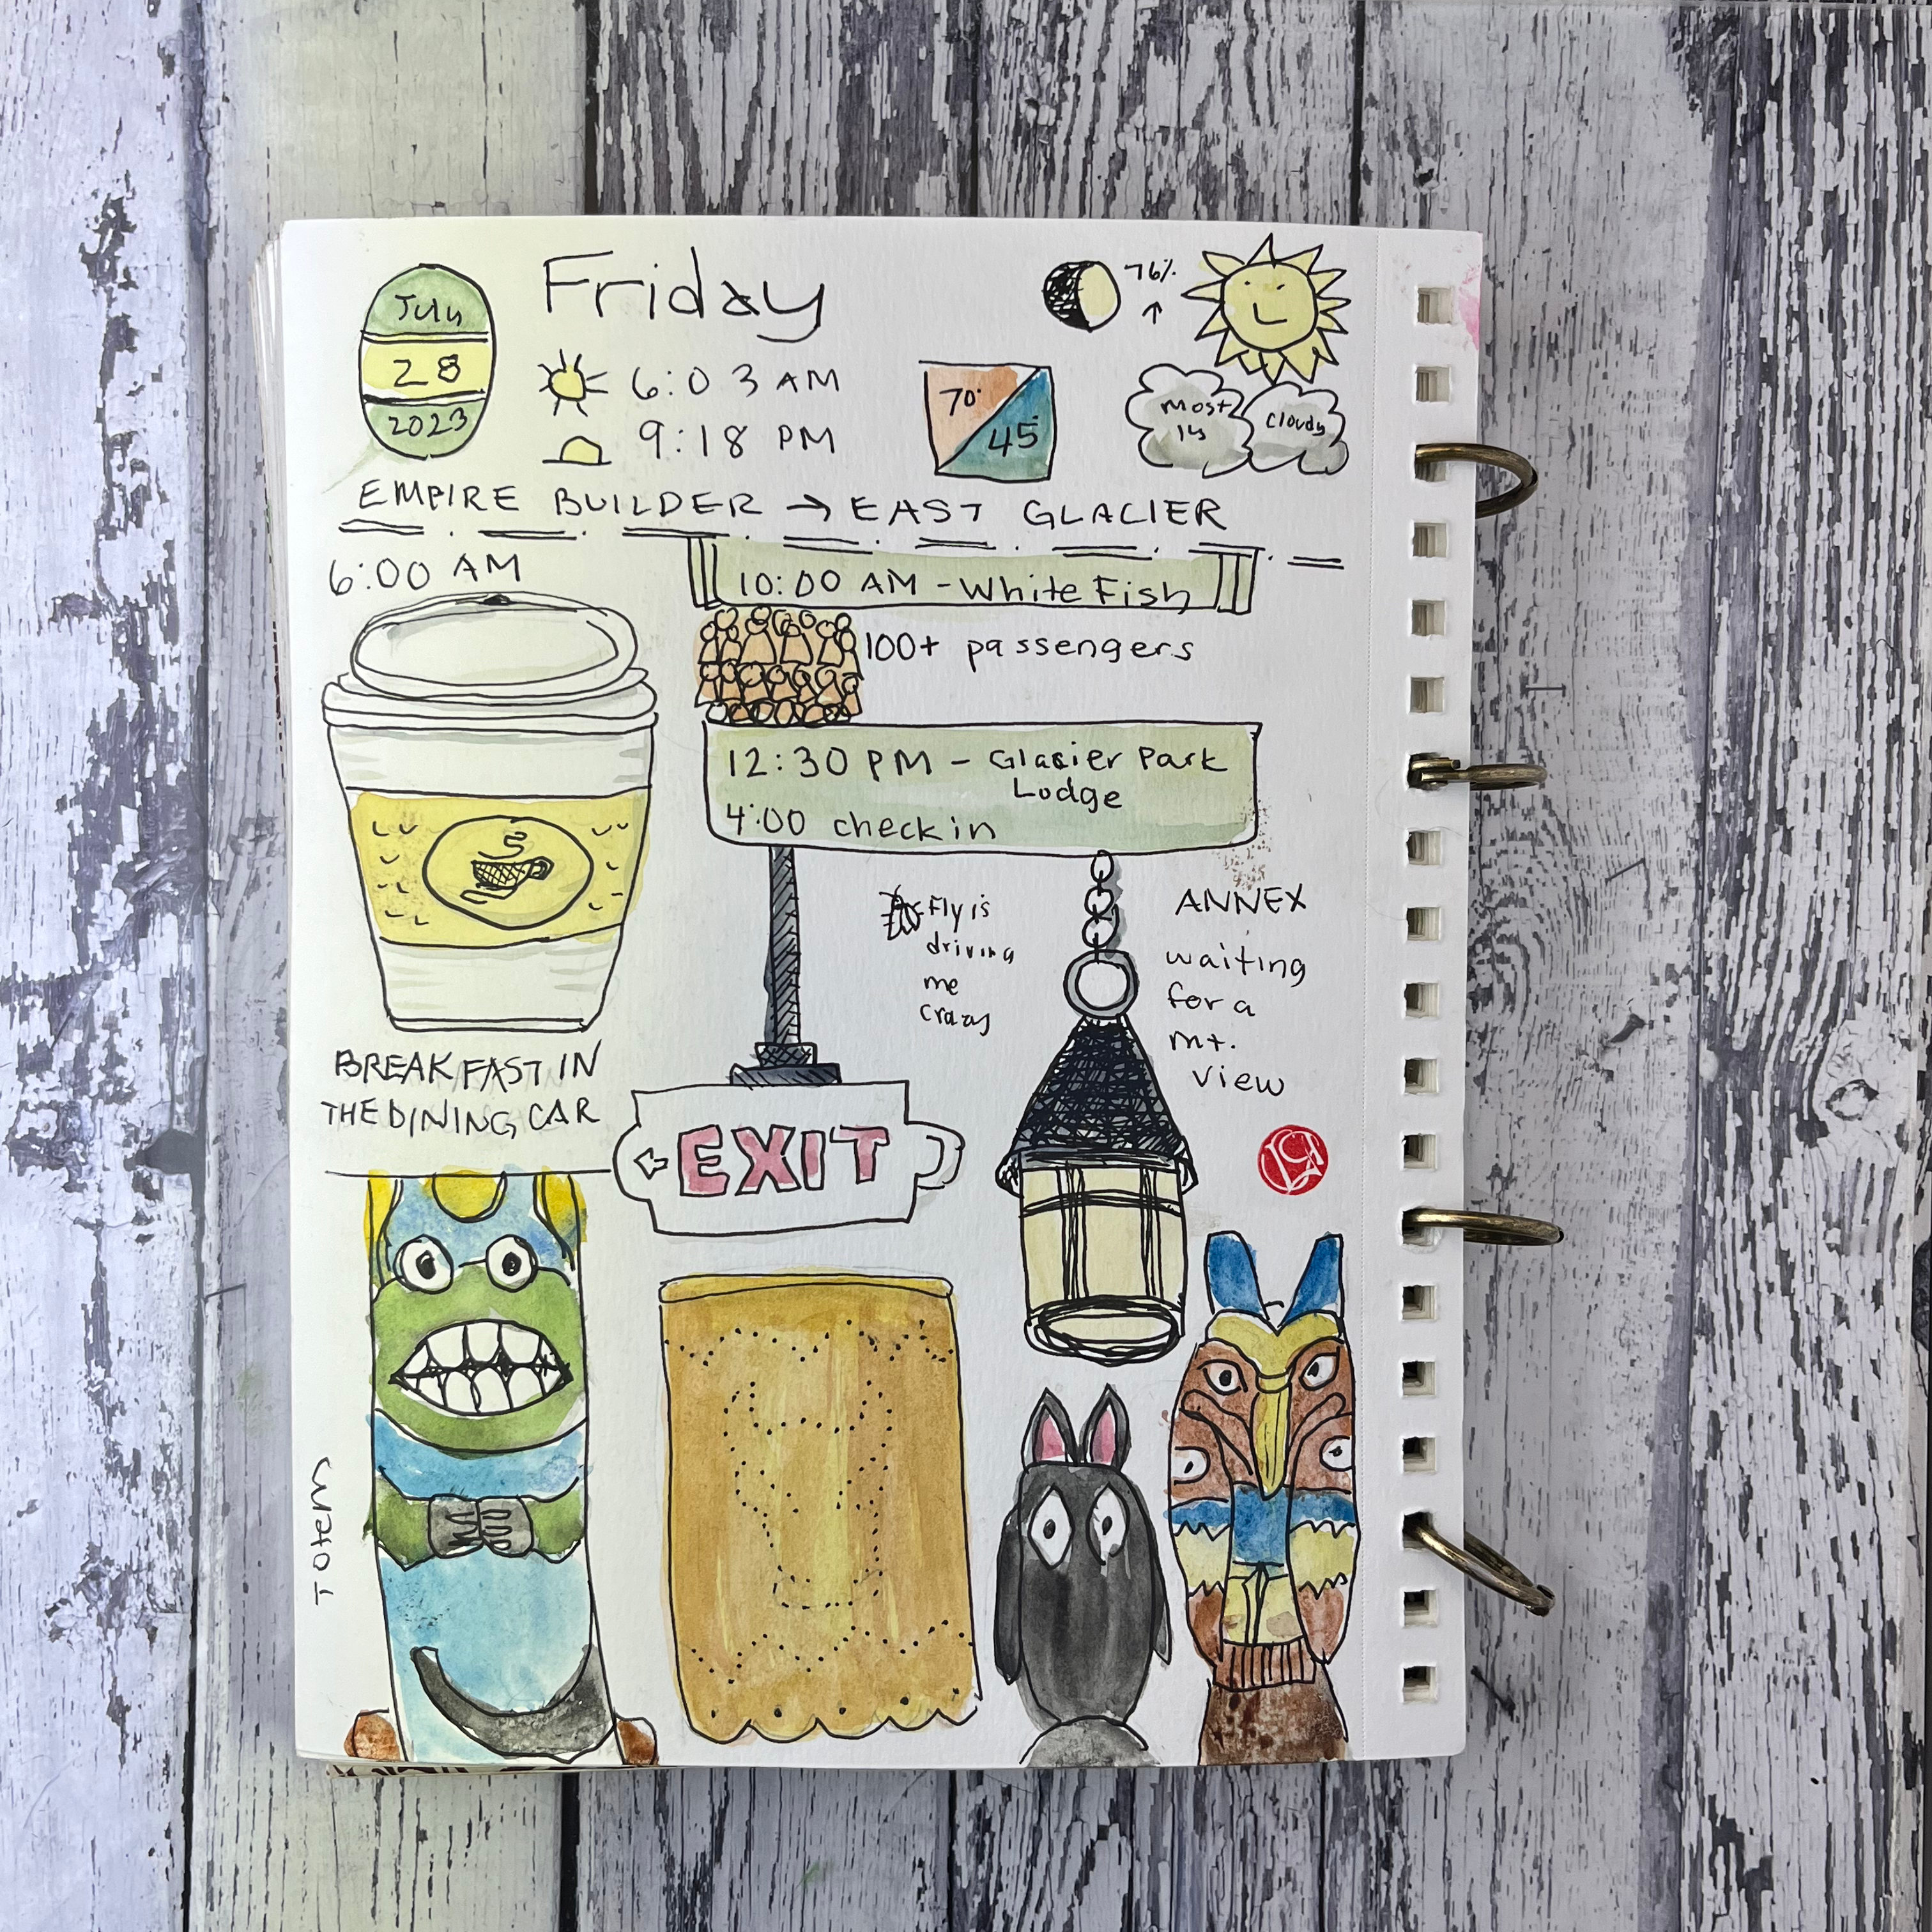 July
28
2023
Friday
6:03 AM
9:18 PM
76%
70°
45°
Most
ly
Cloudy
EMPIRE BUILDER → EAST GLACIER
6:00 AM
10:00 AM - White Fish
100+ passengers
12:30 PM - Glacier Park
Lodge
4:00 check in
Fly is
driving
me
crazy
ANNEX
waiting
for a
mt.
view
BREAKFAST IN
THE DINING CAR
EXIT
Totem